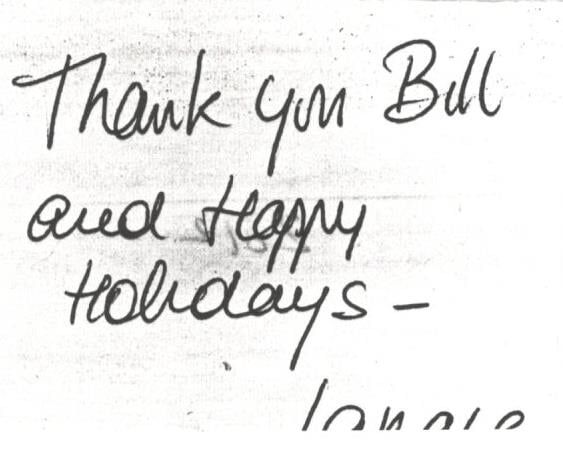 Thank you Bill
and Happy
Holidays -